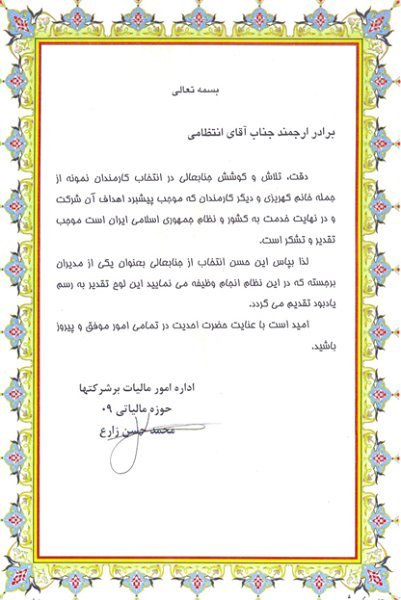 بسمه تعالی
برادر ارجمند جناب آقای انتظامی
دقت، تلاش و کوشش جنابعالی در انتخاب کارمندان نمونه از
جمله خانم کهریزی و دیگر کارمندان که موجب پیشبرد اهداف آن شرکت
و در نهایت خدمت به کشور و نظام جمهوری اسلامی ایران است موجب
تقدیر و تشکر است.
لذا بپاس این حسن انتخاب از جنابعالی بعنوان یکی از مدیران
برجسته که در این نظام انجام وظیفه می نمایید این لوح تقدیر به رسم
یادبود تقدیم می گردد.
امید است با عنایت حضرت احدیت در تمامی امور موفق و پیروز
باشید.
اداره امور مالیات برشرکتها
حوزه مالیاتی ۰۹
محمد حسن زارع